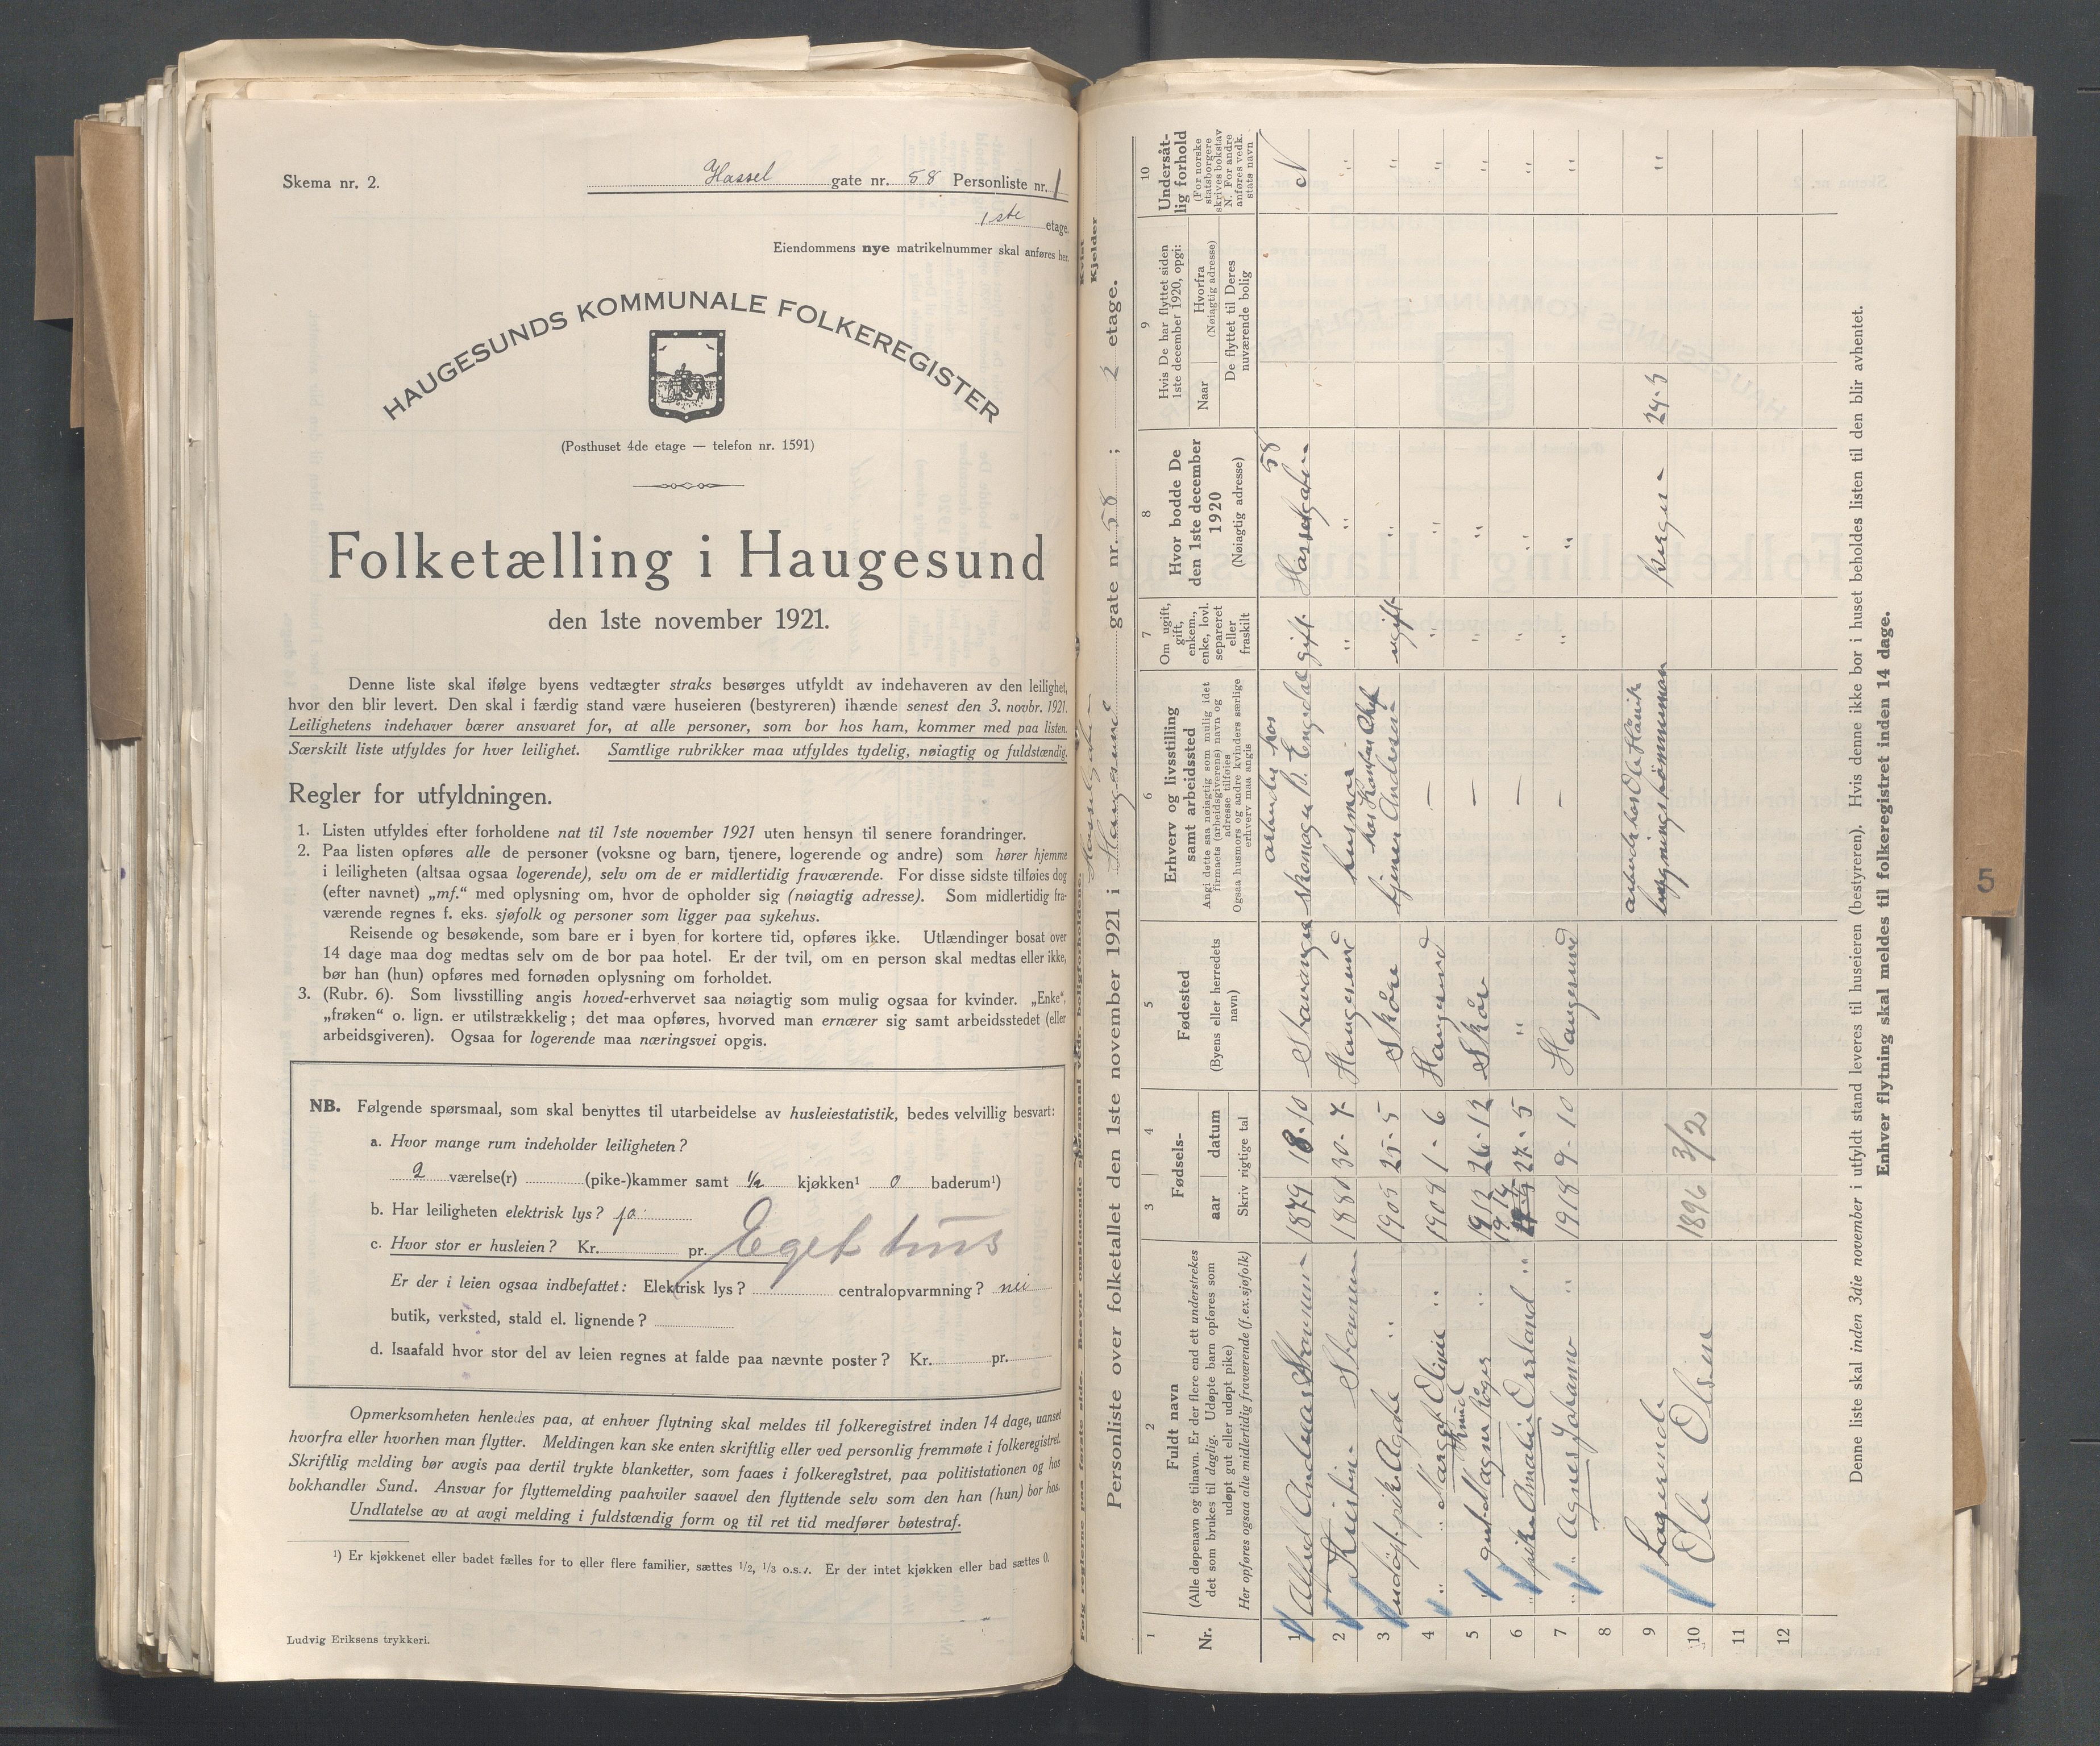 Skema nr. 2.
Hassel gate nr. 58 Personliste nr. 1
1ste etage.
Eiendommens nye matrikelnummer skal anføres her.
HAUGESUNDS KOMMUNALE FOLKEREGISTER
(Posthuset 4de etage — telefon nr. 1591)
Folketælling i Haugesund
den 1ste november 1921.
Denne liste skal ifølge byens vedtægter straks besørges utfyldt av indehaveren av den leilighet,
hvor den blir levert. Den skal i færdig stand være huseieren (bestyreren) ihænde senest den 3. novbr. 1921.
Leilighetens indehaver bærer ansvaret for, at alle personer, som bor hos ham, kommer med paa listen.
Særskilt liste utfyldes for hver leilighet. Samtlige rubrikker maa utfyldes tydelig, nøiagtig og fuldstændig.
Regler for utfyldningen.
1. Listen utfyldes efter forholdene nat til 1ste november 1921 uten hensyn til senere forandringer.
2. Paa listen opføres alle de personer (voksne og barn, tjenere, logerende og andre) som hører hjemme
i leiligheten (altsaa ogsaa logerende), selv om de er midlertidig fraværende. For disse sidste tilføies dog
(efter navnet) „mf.“ med oplysning om, hvor de opholder sig (nøiagtig adresse). Som midlertidig fra-
værende regnes f. eks. sjøfolk og personer som ligger paa sykehus.
Reisende og besøkende, som bare er i byen for kortere tid, opføres ikke. Utlændinger bosat over
14 dage maa dog medtas selv om de bor paa hotel. Er der tvil, om en person skal medtas eller ikke,
bør han (hun) opføres med fornøden oplysning om forholdet.
3. (Rubr. 6). Som livsstilling angis hoved-erhvervet saa nøiagtig som mulig ogsaa for kvinder. „Enke“,
„frøken“ o. lign. er utilstrækkelig; det maa opføres, hvorved man ernærer sig samt arbeidsstedet (eller
arbeidsgiveren). Ogsaa for logerende maa næringsvei opgis.
NB. Følgende spørsmaal, som skal benyttes til utarbeidelse av husleiestatistik, bedes velvillig besvart:
a. Hvor mange rum indeholder leiligheten?
2 værelse(r) (pike-)kammer samt 1/2 kjøkken¹ 0 baderum¹)
b. Har leiligheten elektrisk lys? ja
c. Hvor stor er husleien? Kr. pr. Eget hus
Er der i leien ogsaa indbefattet: Elektrisk lys? centralopvarmning? nei
butik, verksted, stald el. lignende?
d. Isaafald hvor stor del av leien regnes at falde paa nævnte poster? Kr. pr.
Opmerksomheten henledes paa, at enhver flytning skal meldes til folkeregistret inden 14 dage, uanset
hvorfra eller hvorhen man flytter. Meldingen kan ske enten skriftlig eller ved personlig fremmøte i folkeregistret.
Skriftlig melding bør avgis paa dertil trykte blanketter, som faaes i folkeregistret, paa politistationen og hos
bokhandler Sund. Ansvar for flyttemelding paahviler saavel den flyttende selv som den han (hun) bor hos.
Undlatelse av at avgi melding i fuldstændig form og til ret tid medfører bøtestraf.
¹) Er kjøkkenet eller badet fælles for to eller flere familier, sættes 1/2, 1/3 o.s.v. Er der intet kjøkken eller bad sættes 0.
Ludvig Eriksens trykkeri.
Følg reglerne paa første side. Besvar omstaaende spørsmaal vedr. boligforholdene.
Kvist
Kjelder
Hasselgaten
Personliste over folketallet den 1ste november 1921 i Haugesund gate nr. 58 ; 2 etage.
1 Nr.
2 Fuldt navn
(Alle døpenavn og tilnavn. Er der flere end ett understrekes
det som brukes til daglig. Udøpte barn opføres som
udøpt gut eller udøpt pike)
Her opføres ogsaa alle midlertidig fraværende (f. ex. sjøfolk)
3 4 Fødsels-
aar datum
Skriv rigtige tal
5 Fødested
(Byens eller herredets
navn)
6 Erhverv og livsstilling
samt arbeidssted
Angi dette saa nøiagtig som mulig idet
firmaets (arbeidsgiverens) navn og
adresse tilføies
Ogsaa husmors og andre kvinders særlige
erhverv maa angis
7 Om ugift,
gift,
enkem.,
enke, lovl.
separeret
eller
fraskilt
8 Hvor bodde De
den 1ste december
1920
(Nøiagtig adresse)
9 Hvis De har flyttet siden
1ste december 1920, opgi:
Naar
Hvorfra
(Nøiagtig adresse)
De flyttet til Deres
nuværende bolig
10 Undersåt-
lig forhold
(For norske
statsborgere
skrives bokstav
N. For andre
anføres vedk.
stats navn
1 Alfred Andreas 1879 18-10 Stavanger arbeider hos skomager B. Engedal gift Hasselgaten 58 N
2 Kristine 1880 30-7 Haugesund husmor " " "
3 udøpt pike Agate " 1905 25-5 Skåre hos Andersen ugift " "
4 " Margot Oline " 1908 1-6 Haugesund — " " "
5 gut Magner Knud " 1912 26-12 Skåre — " " "
6 " pike Amalie " 1914 27-5 " — " " "
7 " Agnes Johanne " 1918 9-10 Haugesund — " " "
8
9 Logerende arbeider hos
10 Ole Olsen 1896 3/2 Bergen 24-3 "
11
12
Denne liste skal inden 3die november i utfyldt stand leveres til huseieren (bestyreren). Hvis denne ikke bor i huset beholdes listen til den blir avhentet.
Enhver flytning skal meldes til folkeregistret inden 14 dage.
5